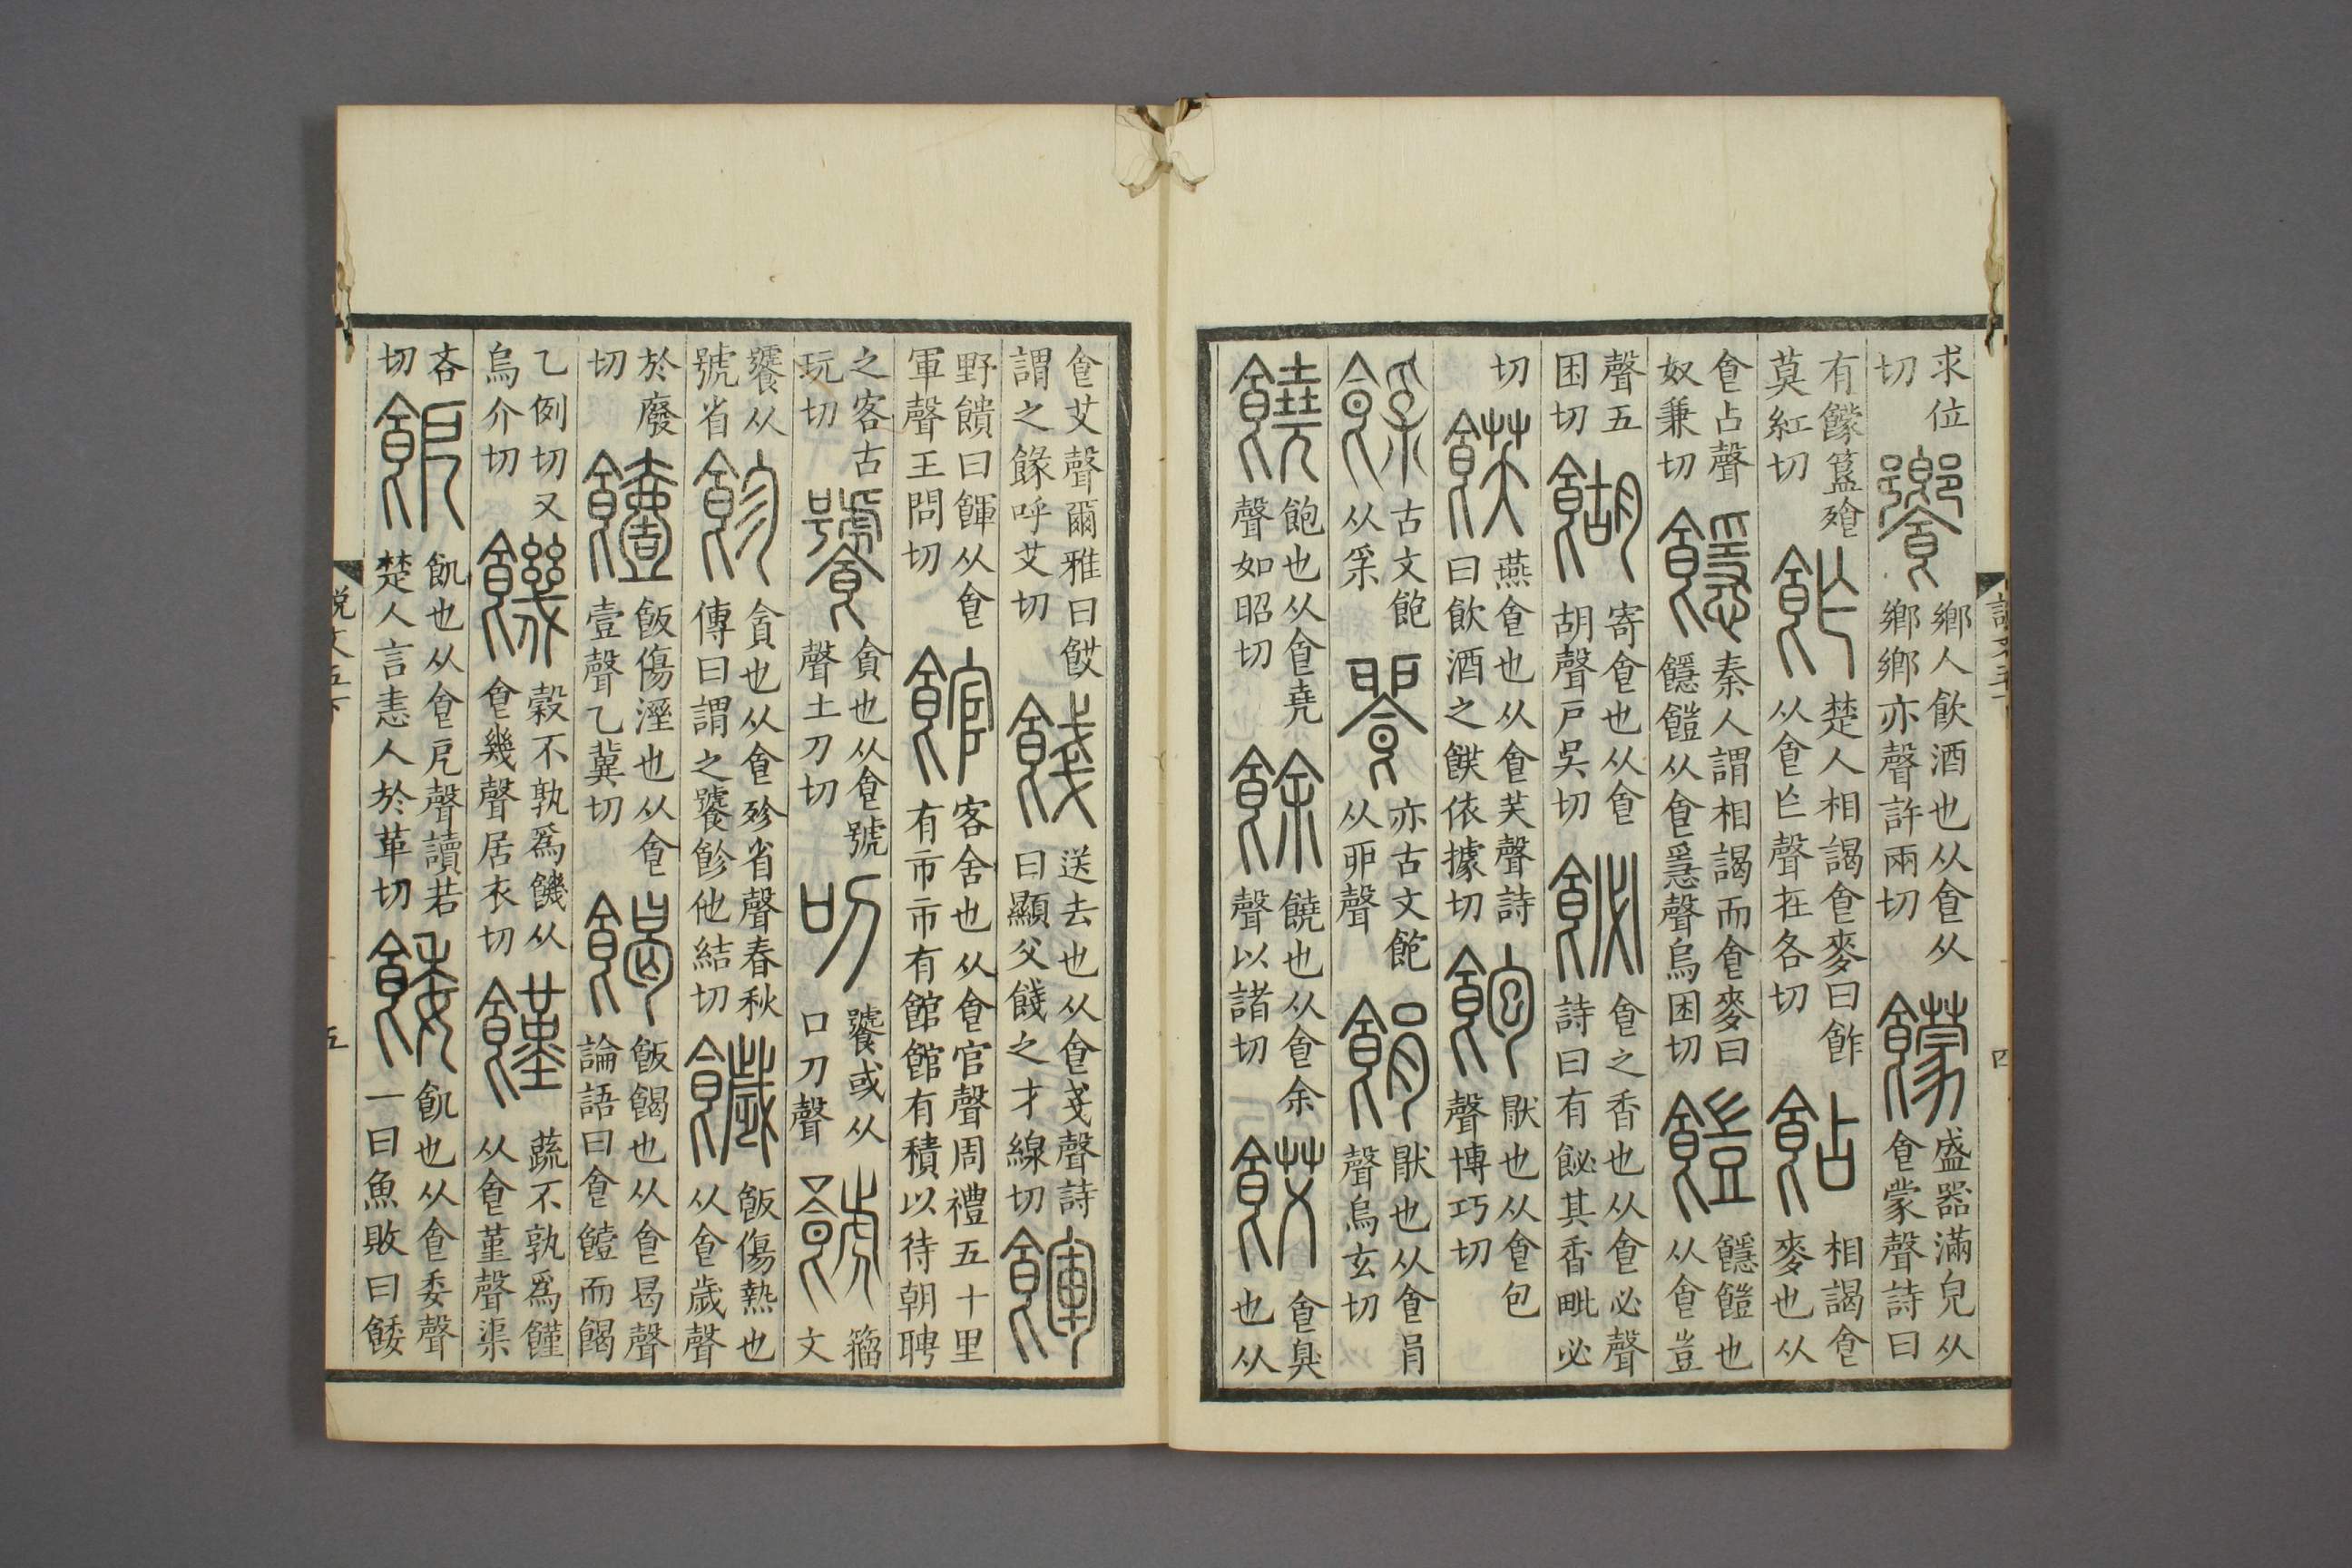 說文五下 四
求位切饗鄉人飲酒也从食从鄉鄉亦聲許兩切饛盛器滿皃从食蒙聲詩曰
有饛簋飱莫紅切飵楚人相謁食麥曰飵从食乍聲在各切䬯相謁食麥也从
食占聲奴兼切䭡秦人謂相謁而食麥曰䭡䭓从食㥯聲烏困切䭓䭡䭓也从食豈
聲五困切餬寄食也从食胡聲戶吳切飶食之香也从食必聲詩曰有飶其香毗必
切䬾燕食也从食芺聲詩曰飲酒之䬾依據切飽猒也从食包聲博巧切
古文飽从𤓽亦古文飽从丣聲䬼猒也从食肙聲烏玄切
饒飽也从食堯聲如昭切餘饒也从食余聲以諸切餀食臭也从
食艾聲爾雅曰餀謂之餯呼艾切餞送去也从食戔聲詩曰顯父餞之才線切餫
野饋曰餫从食軍聲王問切館客舍也从食官聲周禮五十里有市市有館館有積以待朝聘
之客古玩切饕貪也从食號聲土刀切叨饕或从口刀聲籒文
饕从號省飻貪也从食殄省聲春秋傳曰謂之饕飻他結切饖飯傷熱也从食歲聲
於廢切饐飯傷溼也从食壹聲乙冀切餲飯餲也从食曷聲論語曰食饐而餲
乙例切又烏介切饑穀不孰爲饑从食幾聲居衣切饉蔬不孰爲饉从食堇聲渠
吝切飢也从食戹聲讀若楚人言恚人於革切餧飢也从食委聲一曰魚敗曰餧
說文五下 五